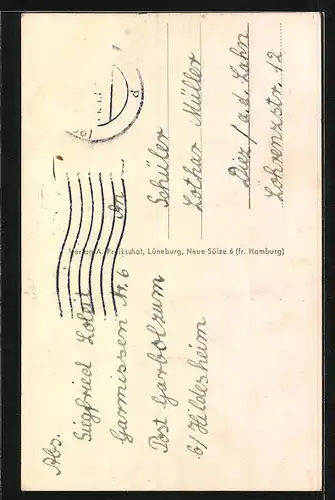 Abs.
Siegfried
Garmissen Nr. 6
Post Garbolzum
b/Hildesheim
Verlag A. Preikschat, Lüneburg, Neue Sülze 6 (fr. Hamburg)
An
Schüler
Lothar Müller
Diez / a.d. Lahn
Löhrenzstr. 12
d